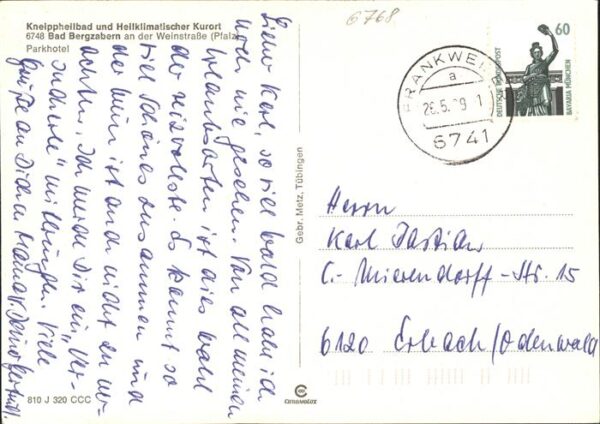 Kneippheilbad und Heilklimatischer Kurort
6748 Bad Bergzabern an der Weinstraße (Pfalz)
Parkhotel
6768
60
DEUTSCHE BUNDESPOST
BAVARIA MÜNCHEN
FRANKWEILER
a
26.5.89-1
6741
Lieber Karl, so viel Wald hab ich
noch nie gesehen. Von all meinen
Urlaubsorten ist dies wohl
der reizvollste. Es kommt so
viel Schönes zusammen und
der Wein ist auch nicht zu ver-
achten. Ich werde Dir ein "Ver-
" mitbringen. Viele
Grüße an Deine Mama.
Herrn
Karl
C.-Mierendorff-Str. 15
6120 Erbach/Odenwald
Gebr. Metz, Tübingen
810 J 320 CCC